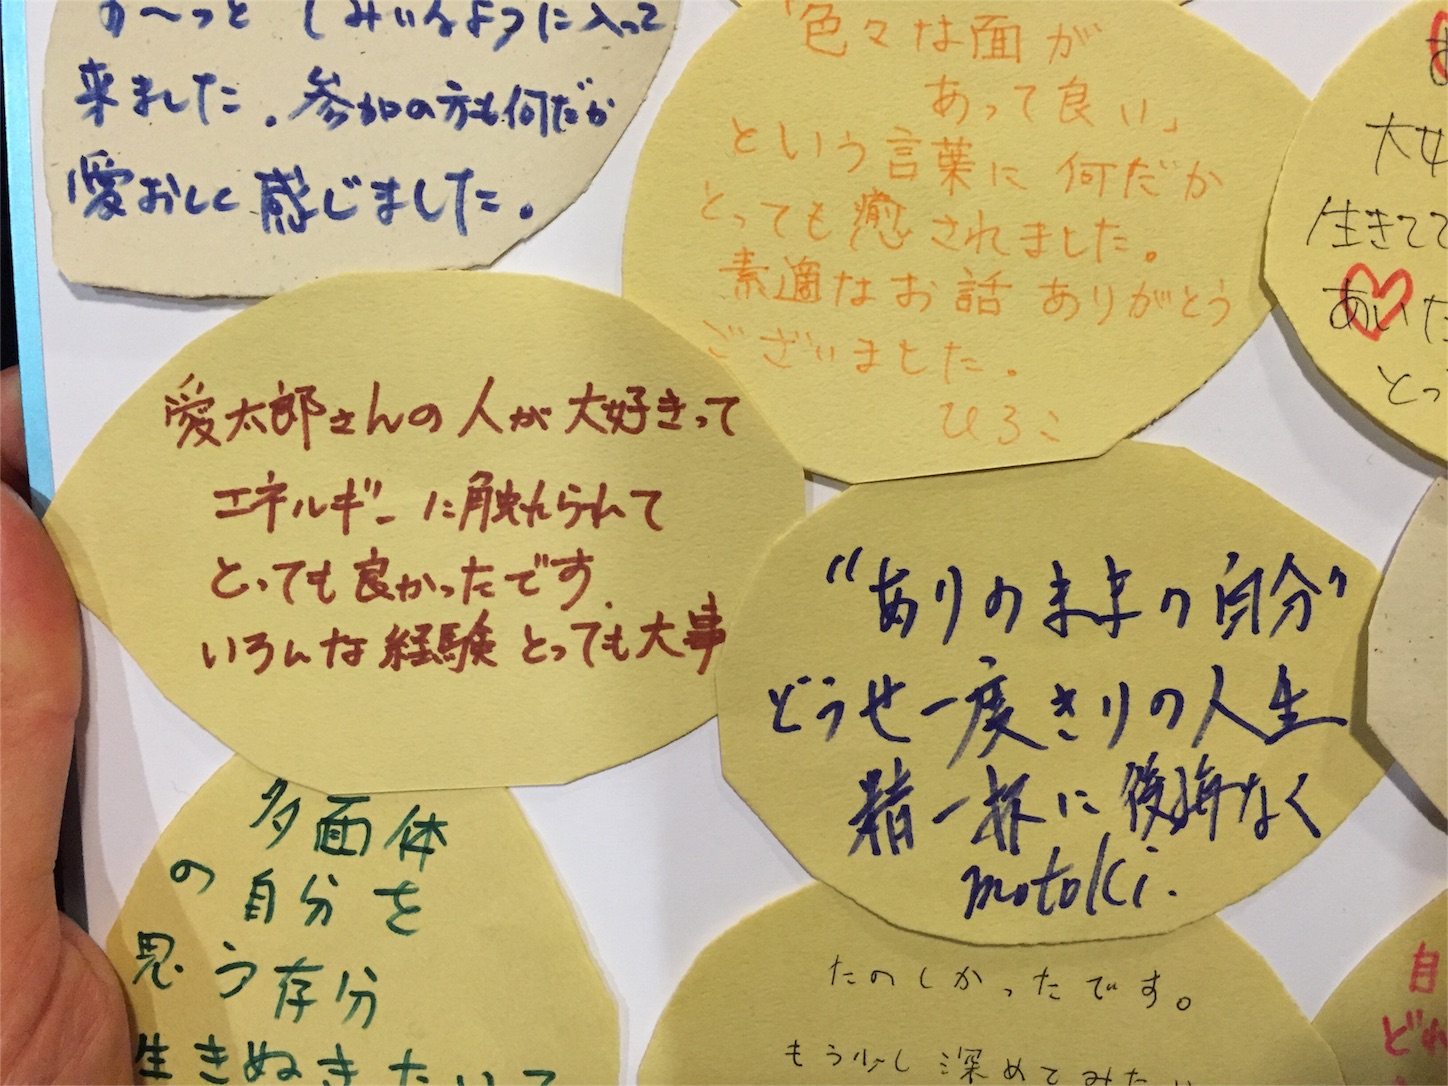 しみいるように入って
来ました。参加の方も何だか
愛おしく感じました。
「色々な面が
あって良い」
という言葉に何だか
とっても癒されました。
素適なお話ありがとう
ございました。
ひろこ
生きてて
とっ
愛太郎さんの人が大好きって
エネルギーに触れられて
とっても良かったです.
いろんな経験とっても大事
“ありのままの自分”
どうせ一度きりの人生
精一杯に後悔なく
motoki.
多面体
の自分を
思う存分
生きぬきたいで
たのしかったです。
もう少し深めてみたい
自
どれ